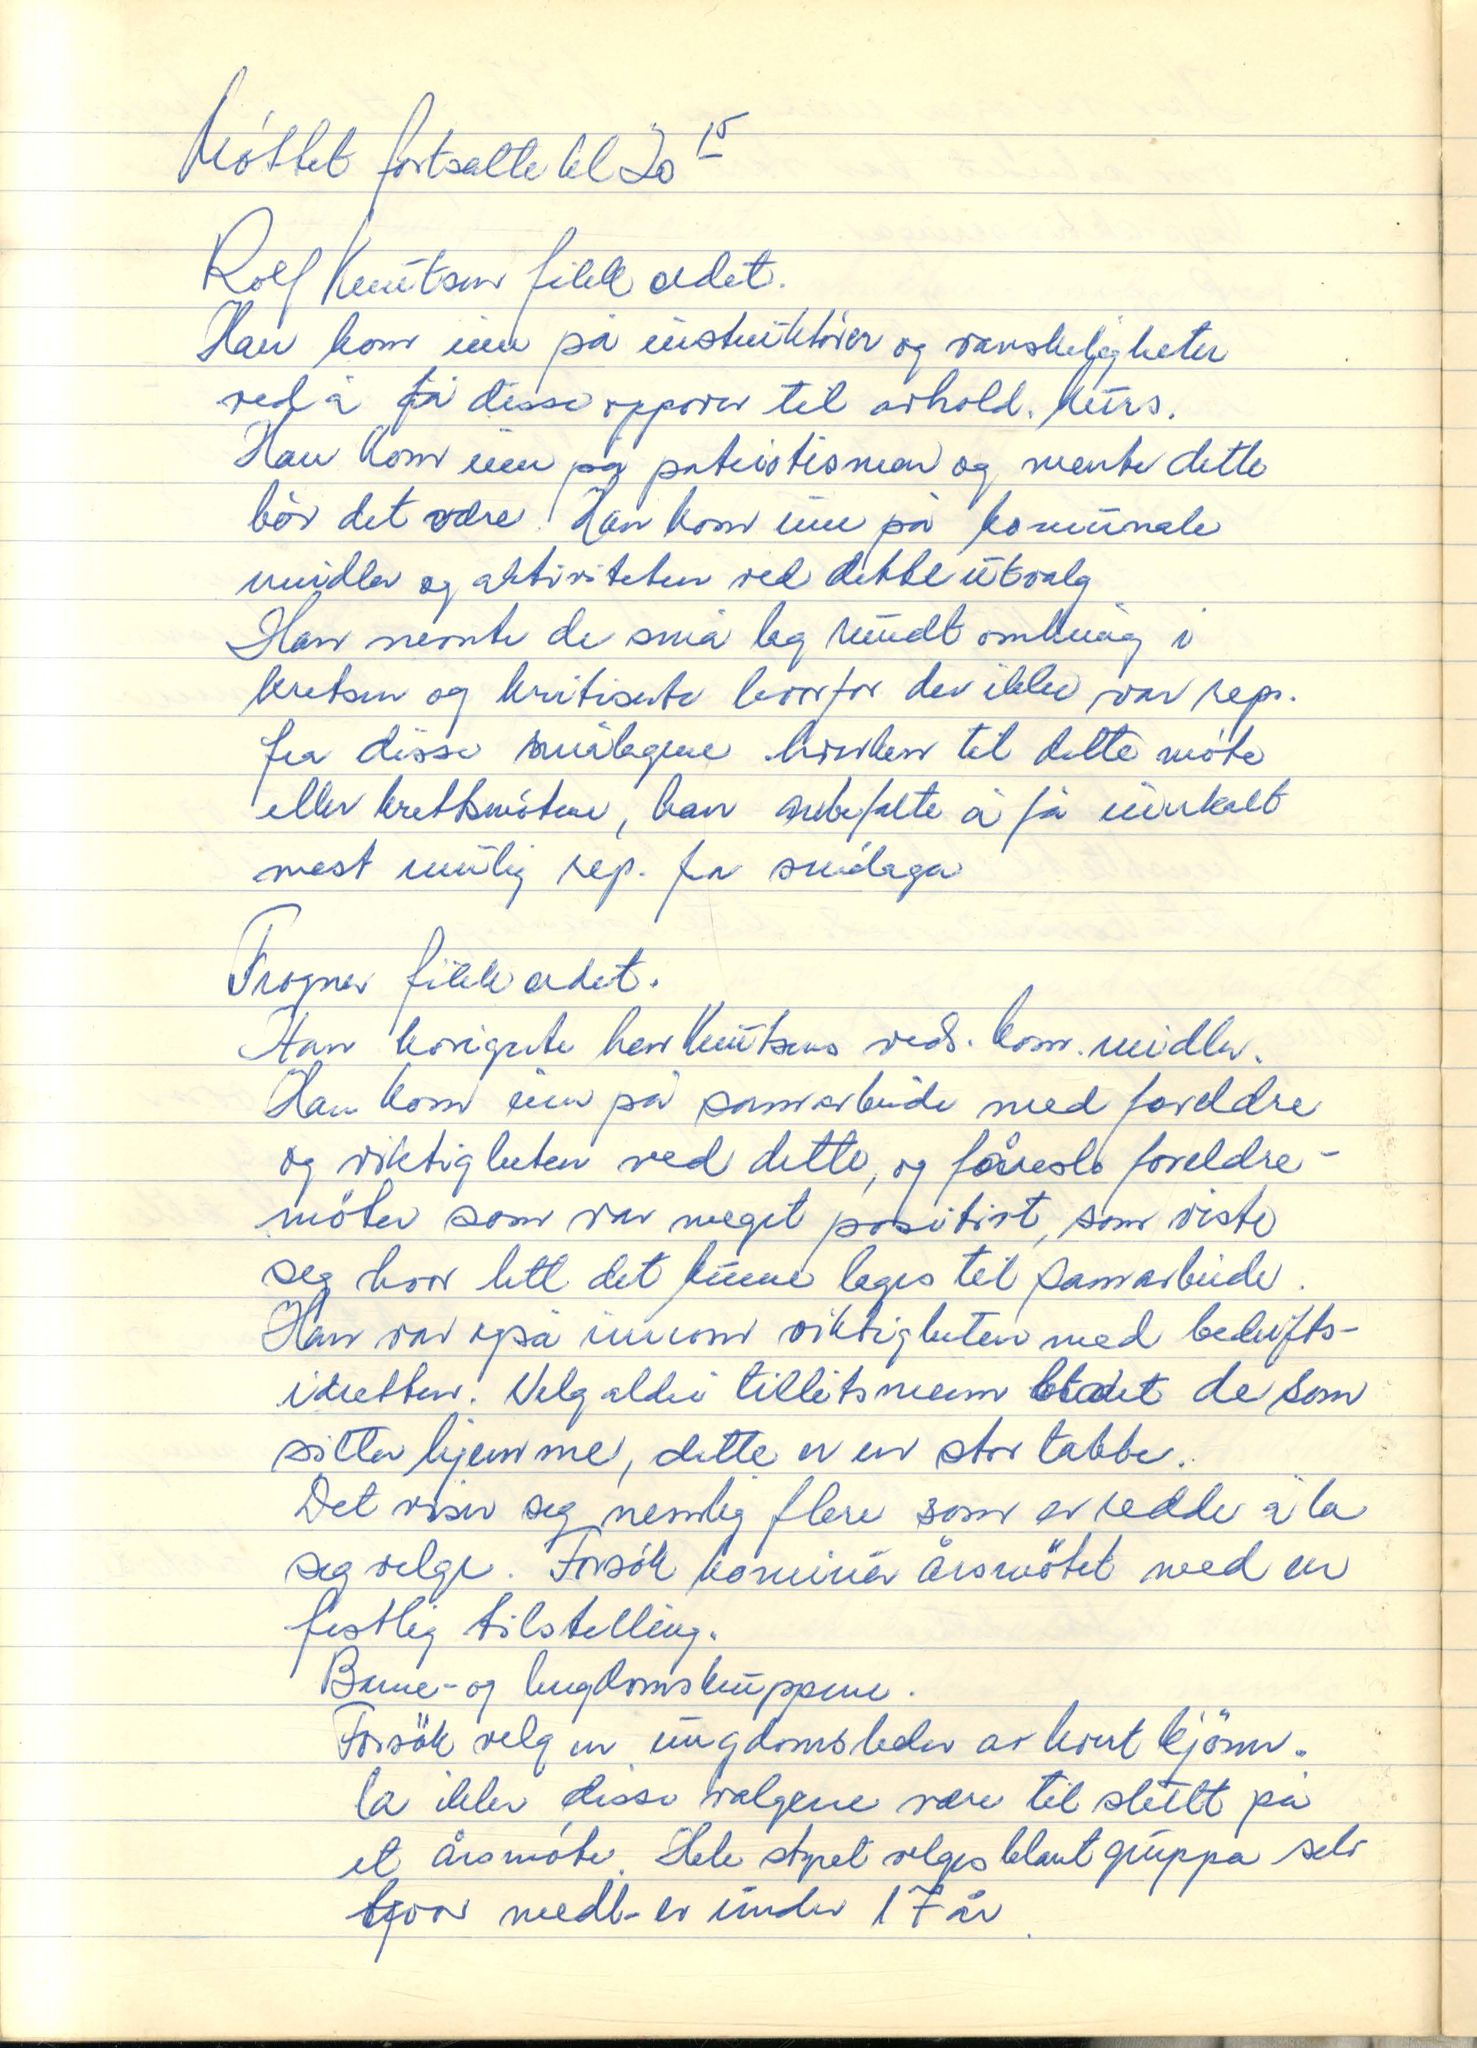 Møttet fortsatte kl 20 15
Rolf Knutsen fikk ordet.
Han kom inn på instruktører og vanskeligheter
ved å få disse oppover til avhold. kurs.
Han kom inn på patriotismen og mente dette
bör det være. Han kom inn på komunale
midler og aktiviteten ved dette utvalg
Han nevnte de små lag rundt omkring i
kretsen og kritiserte hvorfor der ikke var repr.
fra disse smålagene hverken til dette møte
eller kretsmøtene, han anbefalte å få innkalt
mest mulig rep. fra smålaga
Frogner fikk ordet.
Han korigerte herr Knutsens veds. kom. midler.
Han kom inn på samarbeide med foreldre
og viktigheten ved dette, og foreslo foreldre-
möter som var meget positivt, som viste
seg hvor lett det kunne leges til samarbeide.
Han var også innom viktigheten med bedrifts-
idretten. Velg aldri tillitsmenn blandt de som
sitter hjemme, dette er en stor tabbe.
Det viser seg nemlig flere som er redde å la
seg velge. Forsök kominer årsmötet med en
festlig tilstelling.
Barne- og ungdomskuppene.
Forsök velg en ungdomsleder av hvert kjönn.
la ikke disse valgene være til slutt på
et årsmøte. Hele styret velges blant gruppa selv
hvor medl- er under 17 år